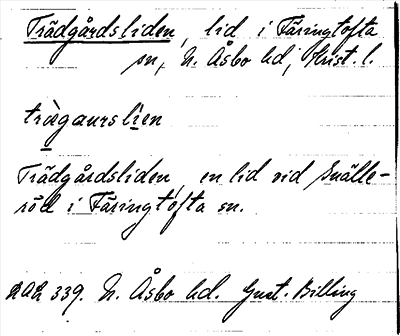 Trädgårdsliden, lid i Färingtofta
sn, N. Åsbo hd, Krist. l.
trägaurslien
Trädgårdsliden, en lid vid Snälle-
röd i Färingtofta sn.
339. N. Åsbo hd. Gust. Billing